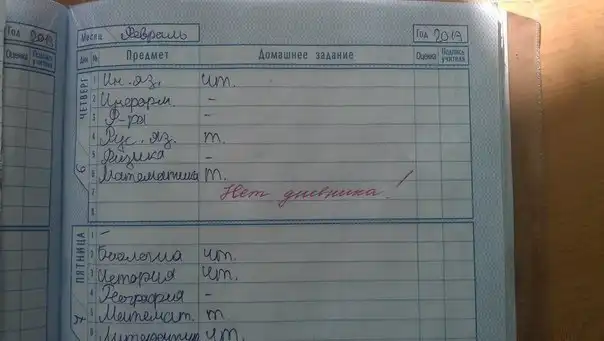 Год 2019 Месяц Февраль Год 2019
Оценка Подпись учителя Дни № Предмет Домашнее задание Оценка Подпись учителя
ЧЕТВЕРГ 6
1 Ин. яз. чт.
2 Информ. -
3 Ф-ра -
4 Рус. яз. т.
5 Физика -
6 Математика т.
7 Нет дневника!
8
ПЯТНИЦА 7
1 -
2 Биология чт.
3 История чт.
4 География -
5 Математ. т
6 Литератур чт.